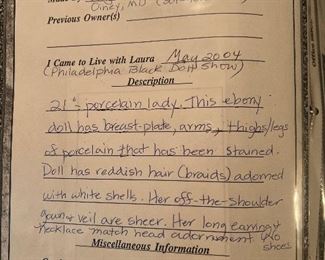 Made by
Olney, MD
Previous Owner(s)
I Came to Live with Laura May 2004
(Philadelphia Black Doll Show)
Description
21" porcelain lady. This ebony
doll has breast-plate, arms, thighs/legs
of porcelain that has been stained.
Doll has reddish hair (braids) adorned
with white shells. Her off-the-shoulder
gown & veil are sheer. Her long earring
necklace match head adornment. No shoes
Miscellaneous Information